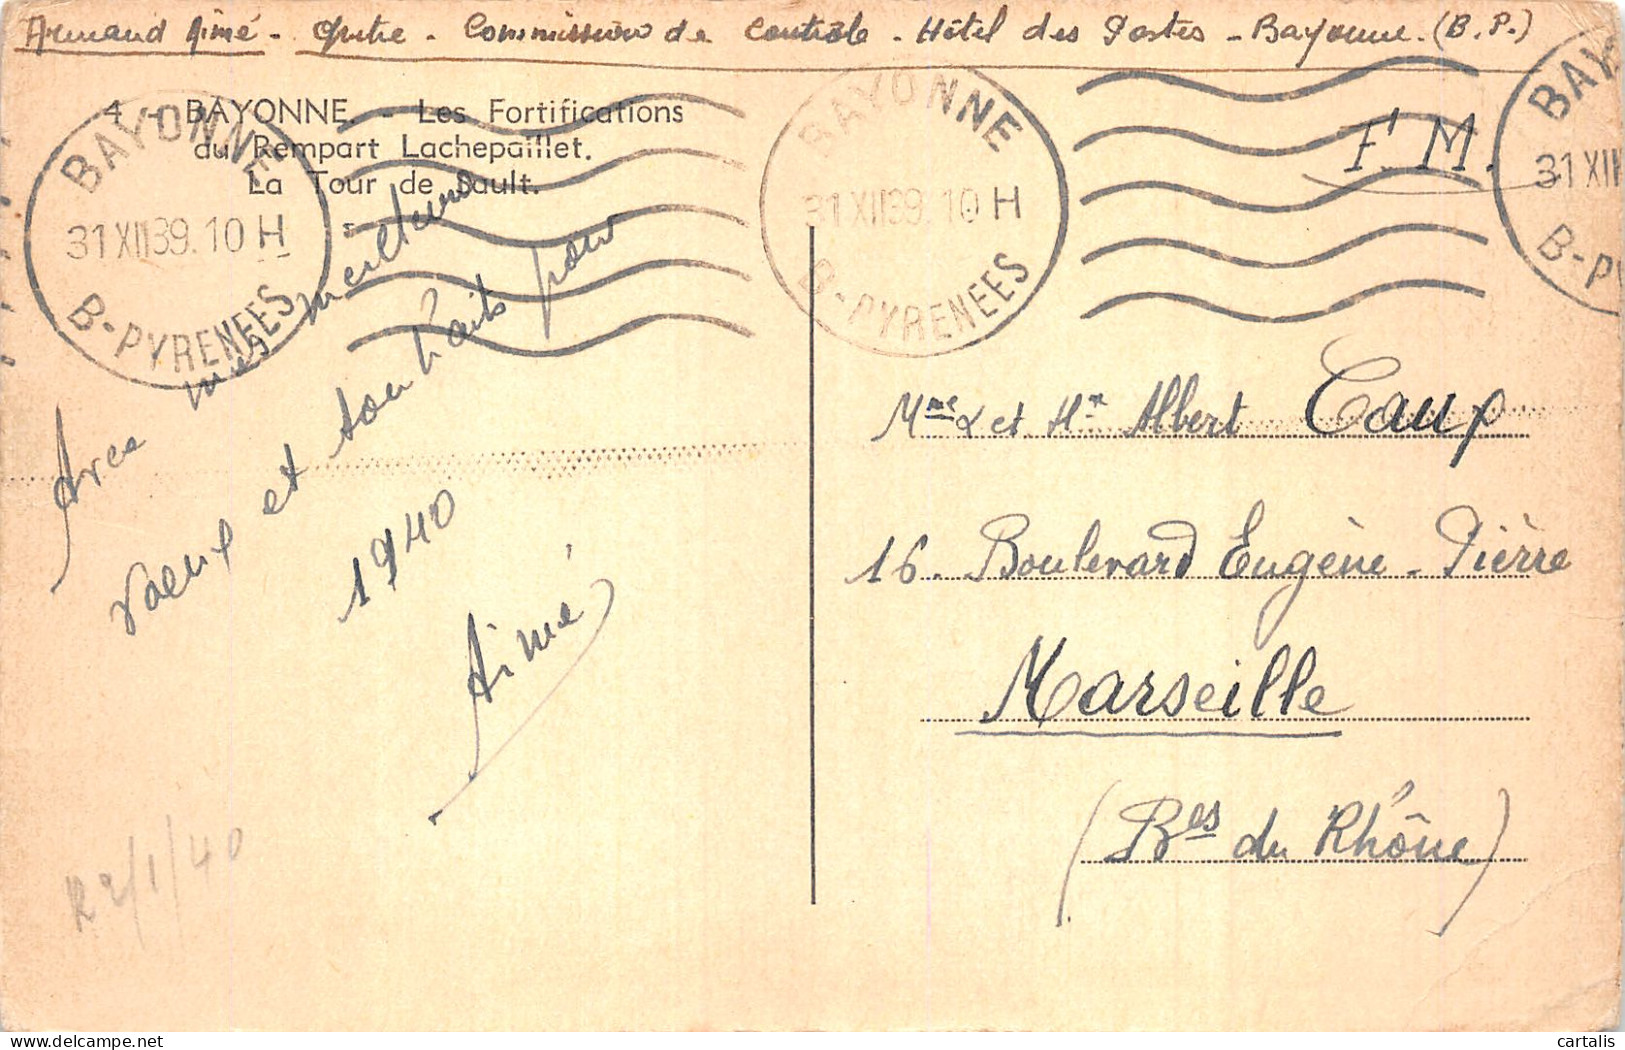 Armand Aimé - - Commission de Contrôle - Hôtel des Postes - Bayonne. (B. P.)
4 - BAYONNE. - Les Fortifications
du Rempart Lachepaillet.
La Tour de Sault.
BAYONNE
31 XII 39. 10 H
B-PYRENEES
BAYONNE
31 XII 39. 10 H
B-PYRENEES
F. M.
BAY
31 XII
B-PY
Avec mes meilleurs
vœux et souhaits pour
1940
Aimé
R 2/1/40
Mme et Mr Albert Camp
16. Boulevard Eugène-Pièrre
Marseille
(Bes du Rhône)
cartalis
delcampe.net